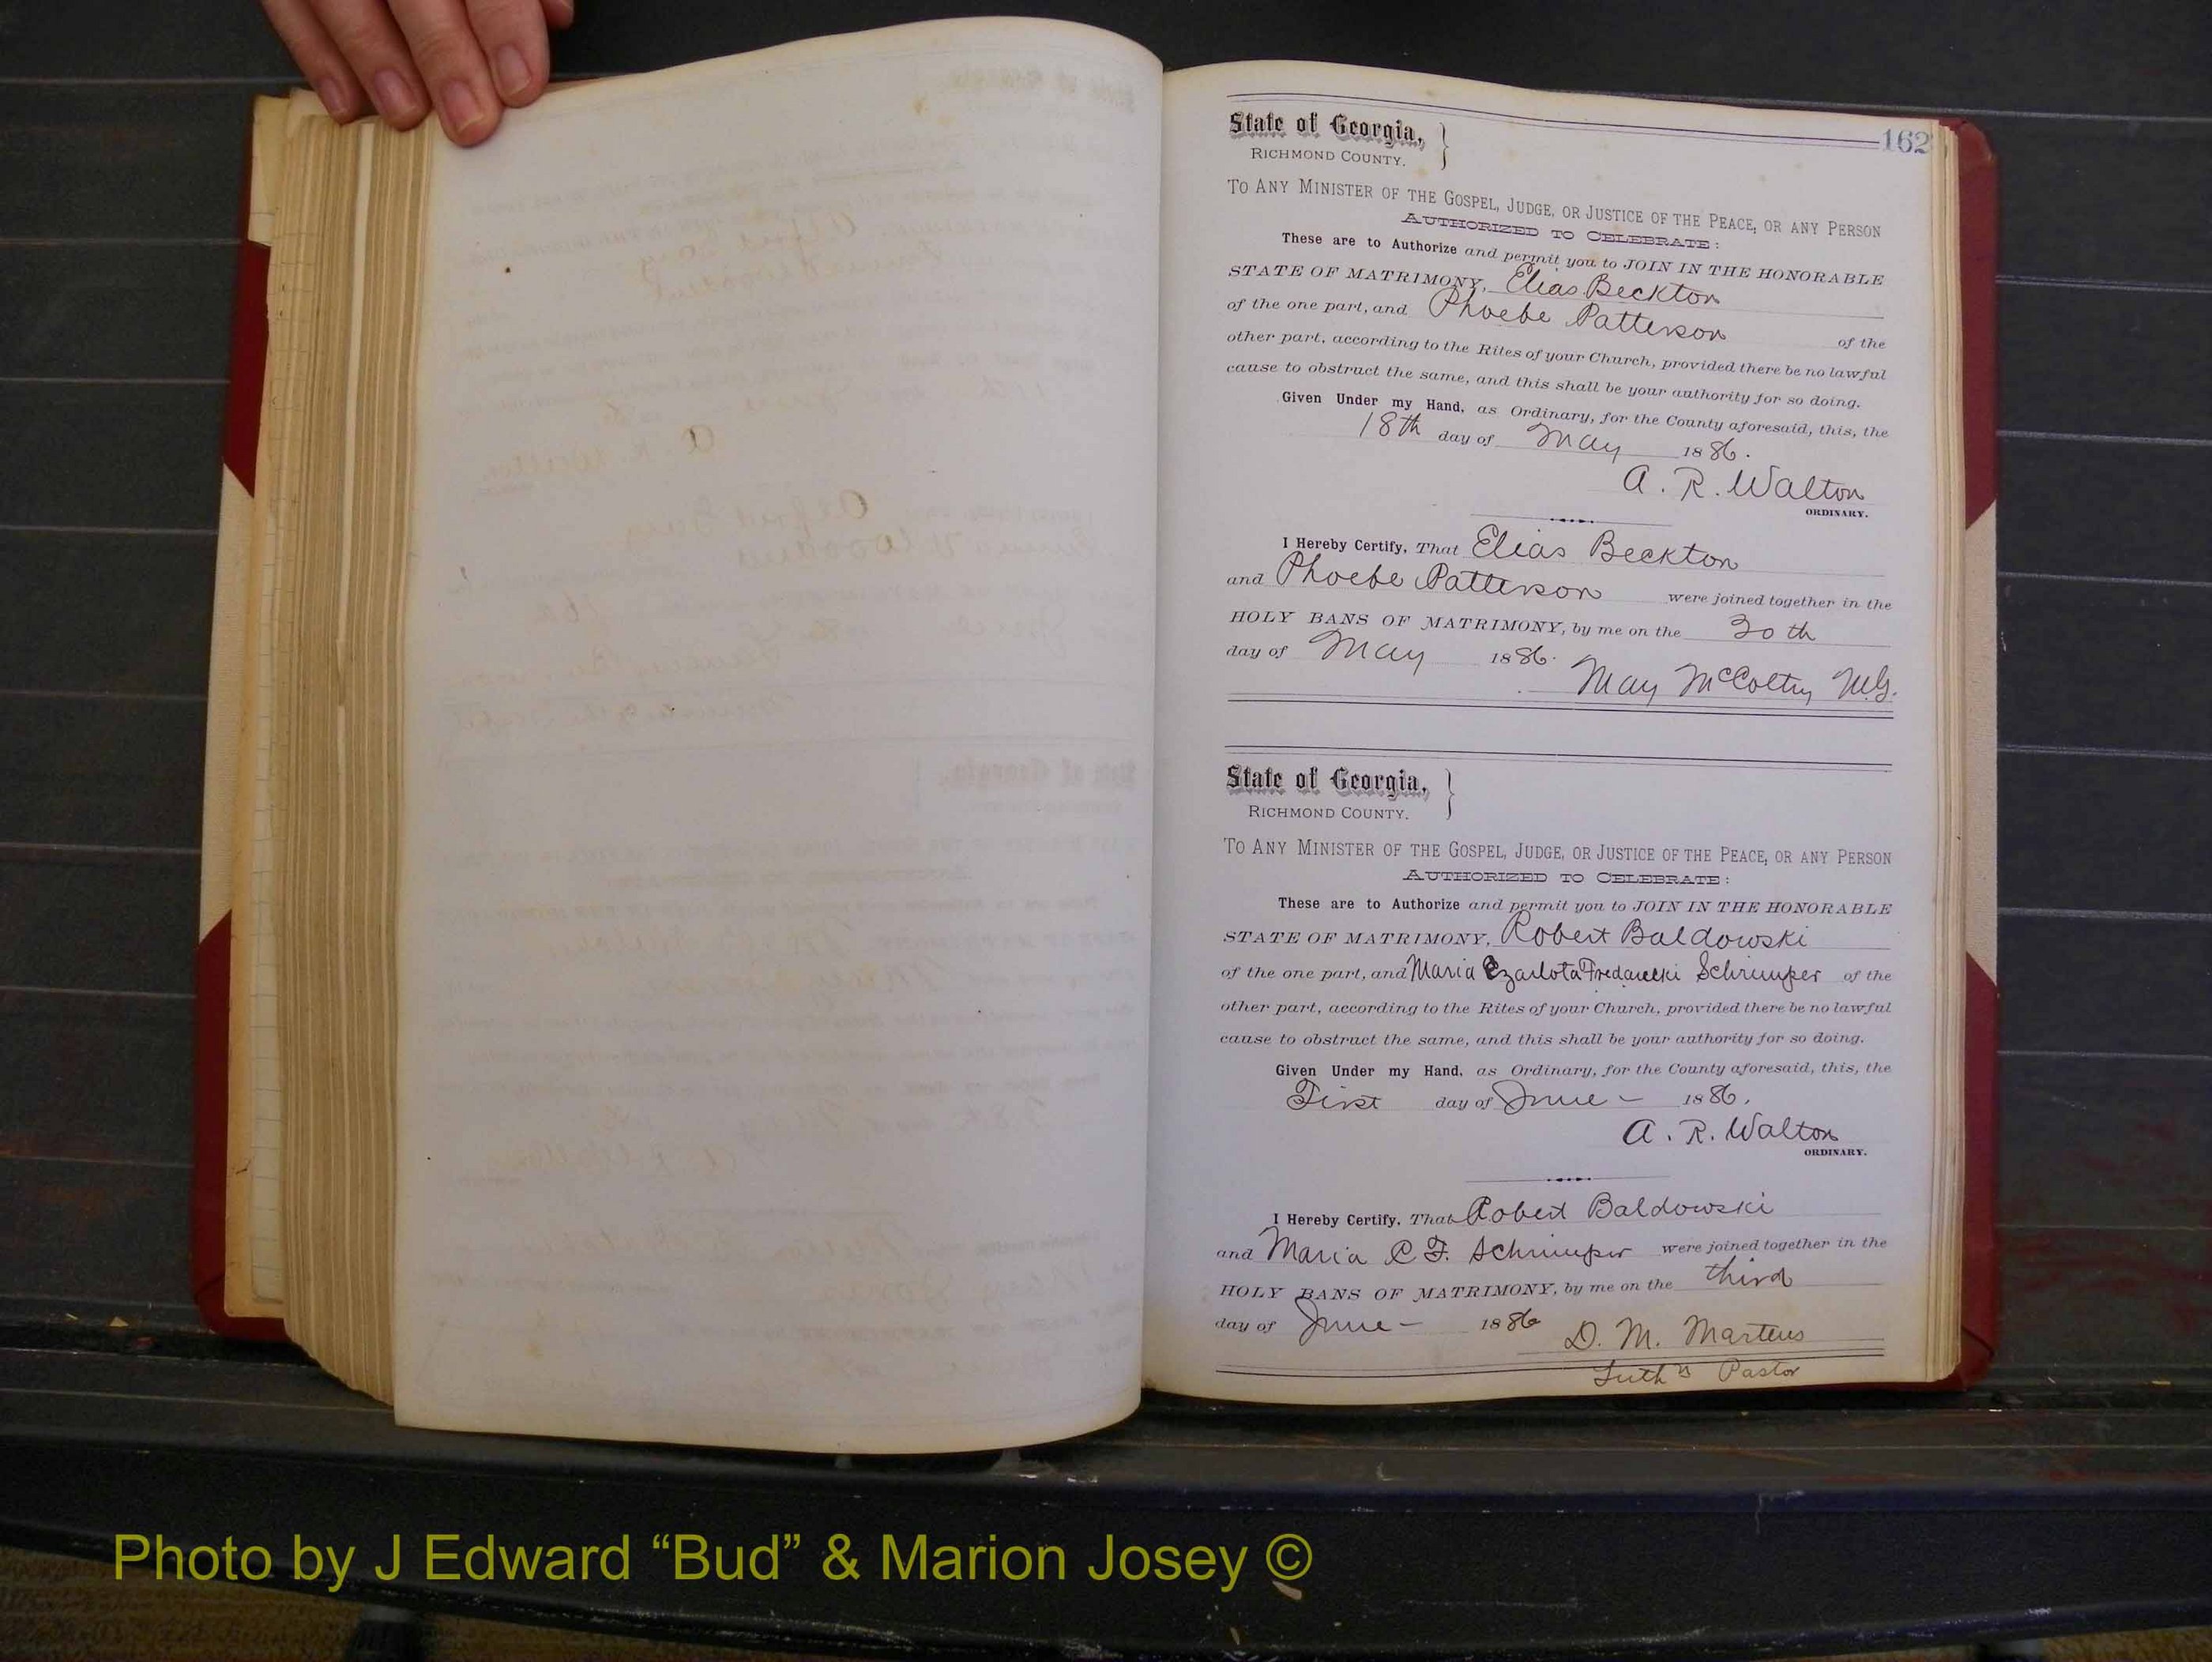 162
State of Georgia,
RICHMOND COUNTY.
TO ANY MINISTER OF THE GOSPEL, JUDGE, OR JUSTICE OF THE PEACE, OR ANY PERSON
AUTHORIZED TO CELEBRATE:
These are to Authorize and permit you to JOIN IN THE HONORABLE
STATE OF MATRIMONY, Elias Beckton
of the one part, and Phoebe Patterson of the
other part, according to the Rites of your Church, provided there be no lawful
cause to obstruct the same, and this shall be your authority for so doing.
Given Under my Hand, as Ordinary, for the County aforesaid, this, the
18th day of May 1886.
A. R. Walton
ORDINARY.
I Hereby Certify, That Elias Beckton
and Phoebe Patterson were joined together in the
HOLY BANS OF MATRIMONY, by me on the 30th
day of May 1886.
May M.G.
State of Georgia,
RICHMOND COUNTY.
TO ANY MINISTER OF THE GOSPEL, JUDGE, OR JUSTICE OF THE PEACE, OR ANY PERSON
AUTHORIZED TO CELEBRATE:
These are to Authorize and permit you to JOIN IN THE HONORABLE
STATE OF MATRIMONY, Robert Baldowski
of the one part, and Maria Schrimper of the
other part, according to the Rites of your Church, provided there be no lawful
cause to obstruct the same, and this shall be your authority for so doing.
Given Under my Hand, as Ordinary, for the County aforesaid, this, the
First day of June - 1886.
A. R. Walton
ORDINARY.
I Hereby Certify, That Robert Baldowski
and Maria C. F. Schrimper were joined together in the
HOLY BANS OF MATRIMONY, by me on the third
day of June - 1886
D. M. Martens
Luthn Pastor
Photo by J Edward “Bud” & Marion Josey ©